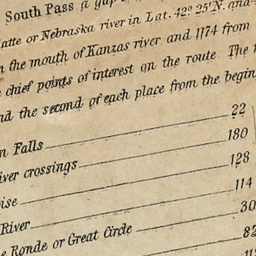 South Pass a gap
latte or Nebraska river in Lat. 42° 25' N. and
the mouth of Kanzas river and 1174 from
chief points of interest on the route The
nd the second of each place from the begin
n Falls 22
iver crossings 180
oise 128
River 114
e Ronde or Great Circle 30
82